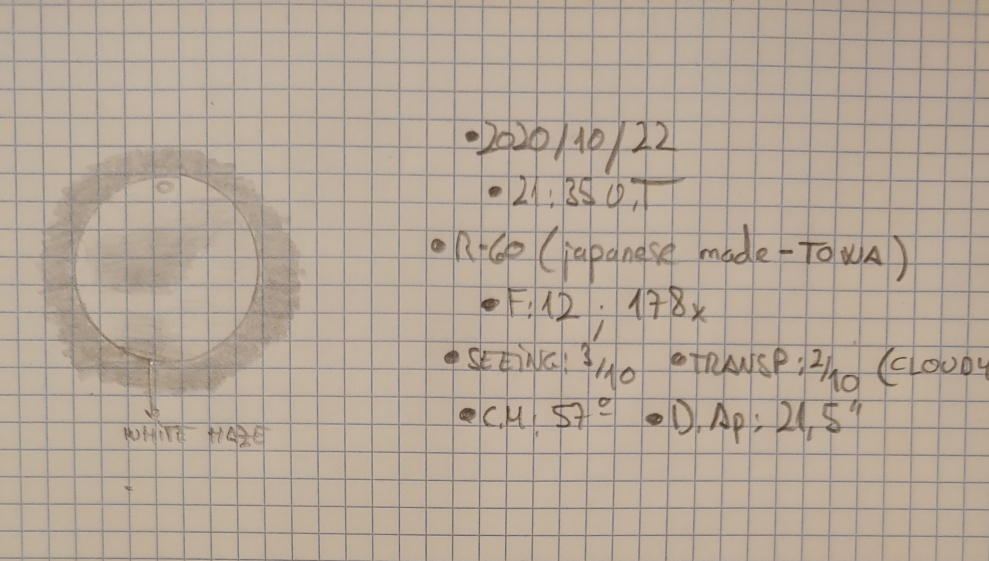 •2020/10/22
•21:35 U.T
•R-60 (japanese made-TOWA)
•F:12 ; 178x
•SEEING: 3/10 •TRANSP: 2/10 (CLOUDY
•C.M: 57º •D.Ap: 21,5"
WHITE HAZE